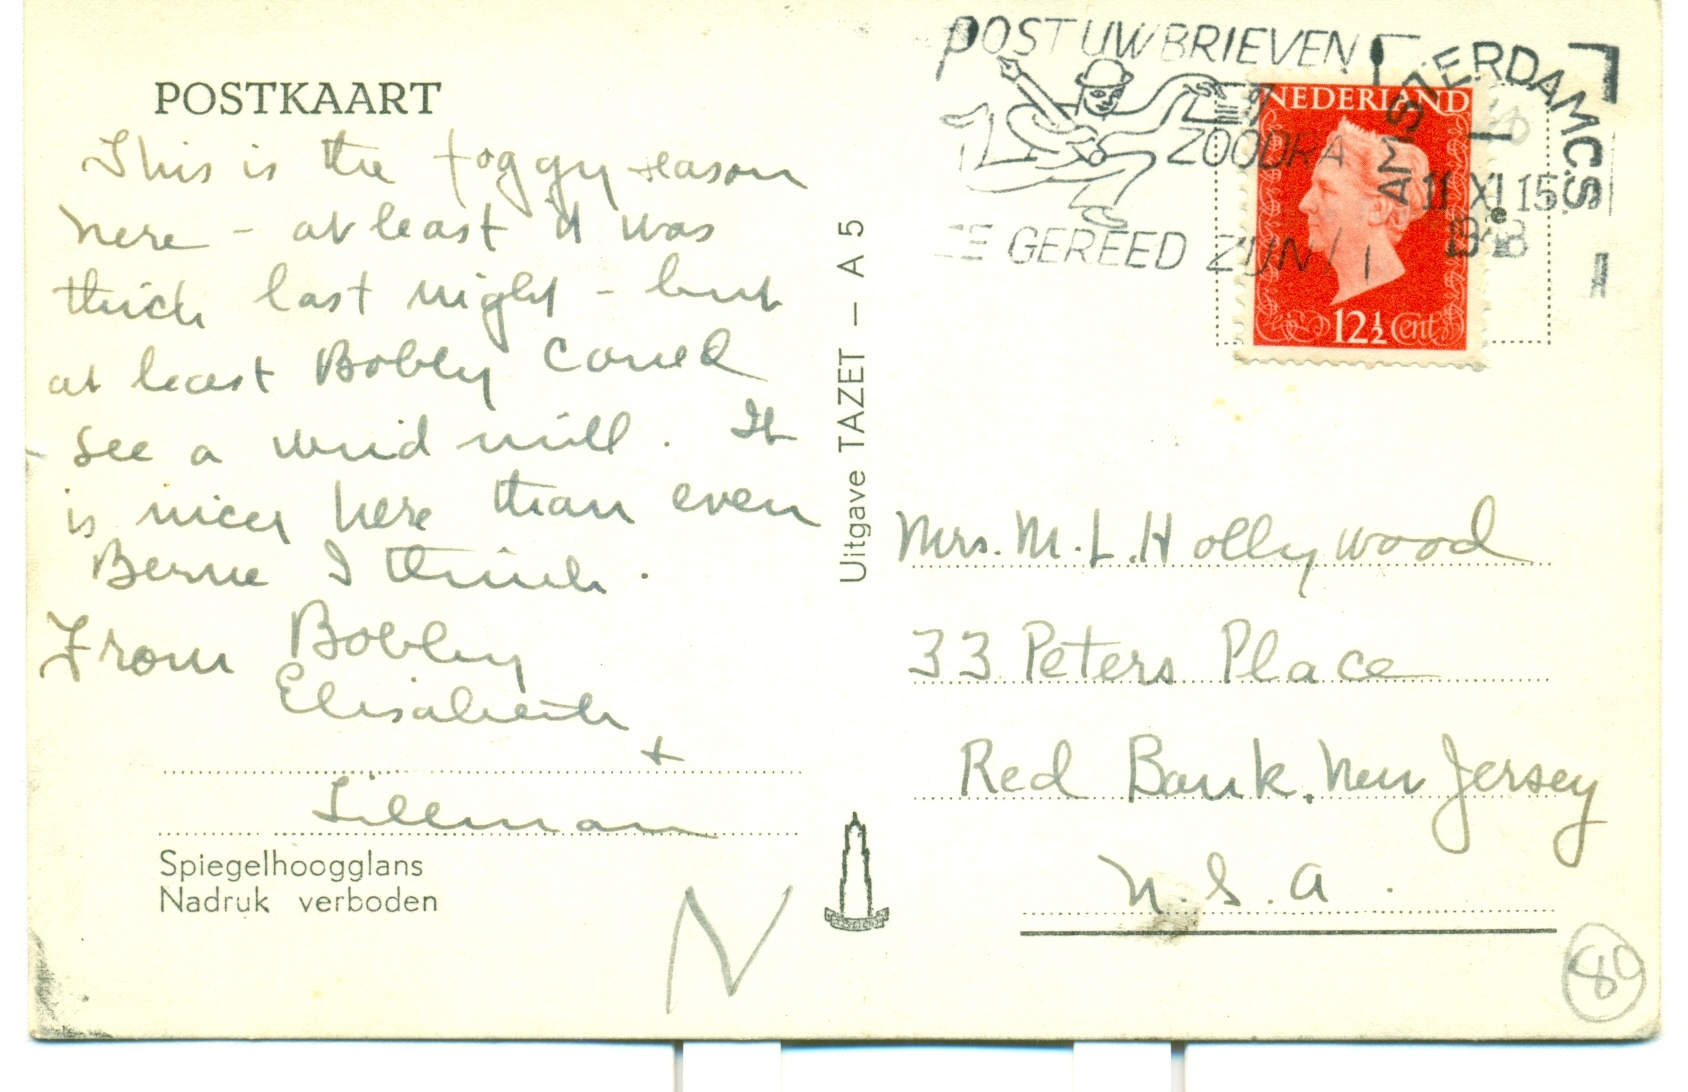 POSTKAART
This is the foggy season
here - at least it was
thick last night - but
at least Bobby could
see a wind mill. It
is nicer here than even
Berne I think.
From Bobby
Elisabeth
+
Lillman
Spiegelhoogglans
Nadruk verboden
Uitgave TAZET — A 5
POST UW BRIEVEN
ZOODRA
ZE GEREED ZIJN!
AMSTERDAM C.S
11 XI 15
1948
NEDERLAND
12½ Cent
Mrs. M. L. Hollywood
33 Peters Place
Red Bank, New Jersey
U. S. A.
N
80